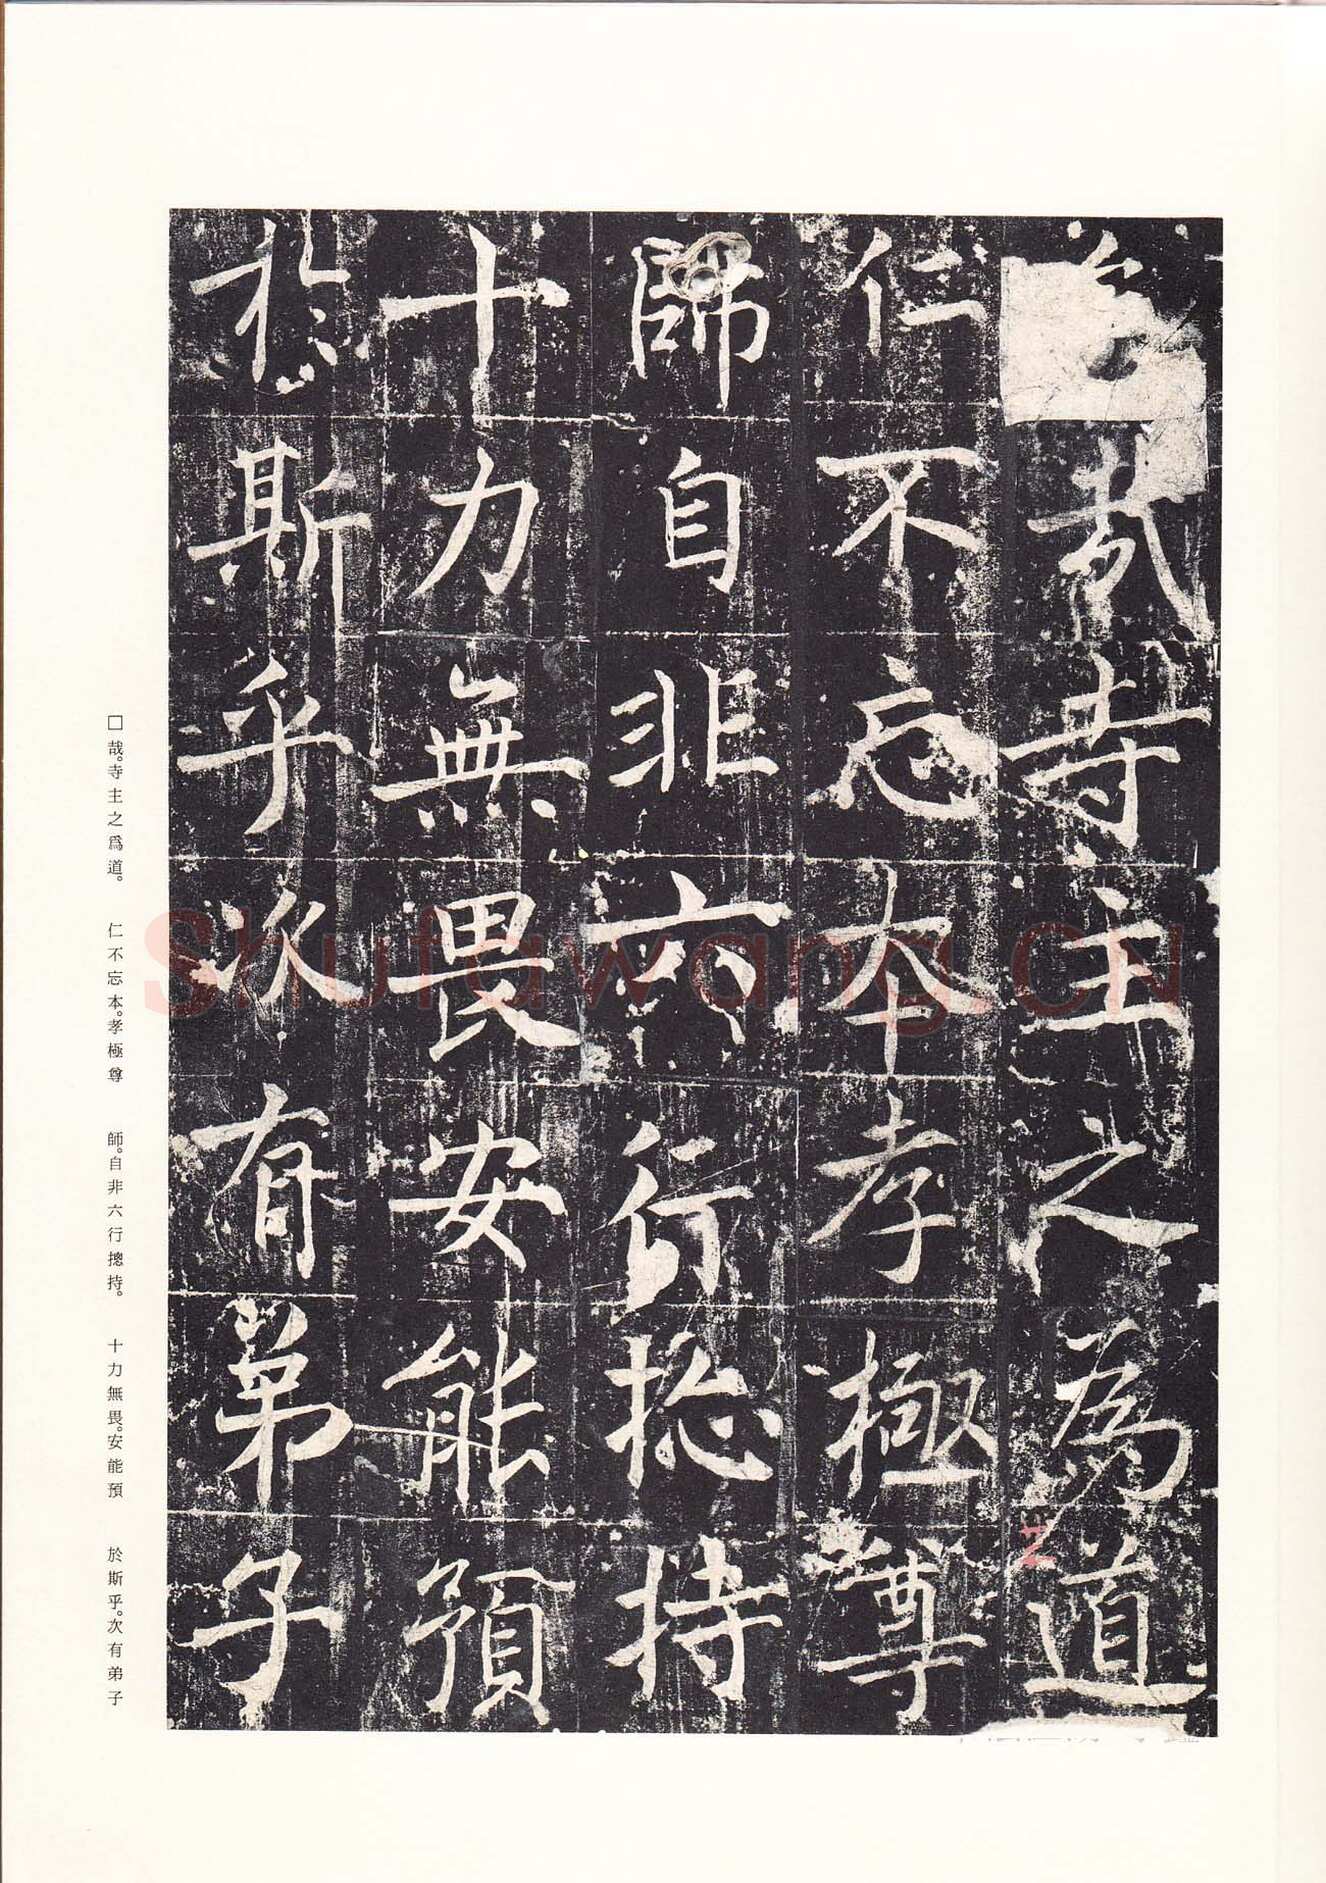 哉寺主之為道
仁不忘本孝極尊
師自非六行揔持
十力無畏安能預
於斯乎次有弟子
□哉。寺主之爲道。 仁不忘本。孝極尊 師。自非六行摠持。 十力無畏。安能預 於斯乎。次有弟子
Shufawang.CN